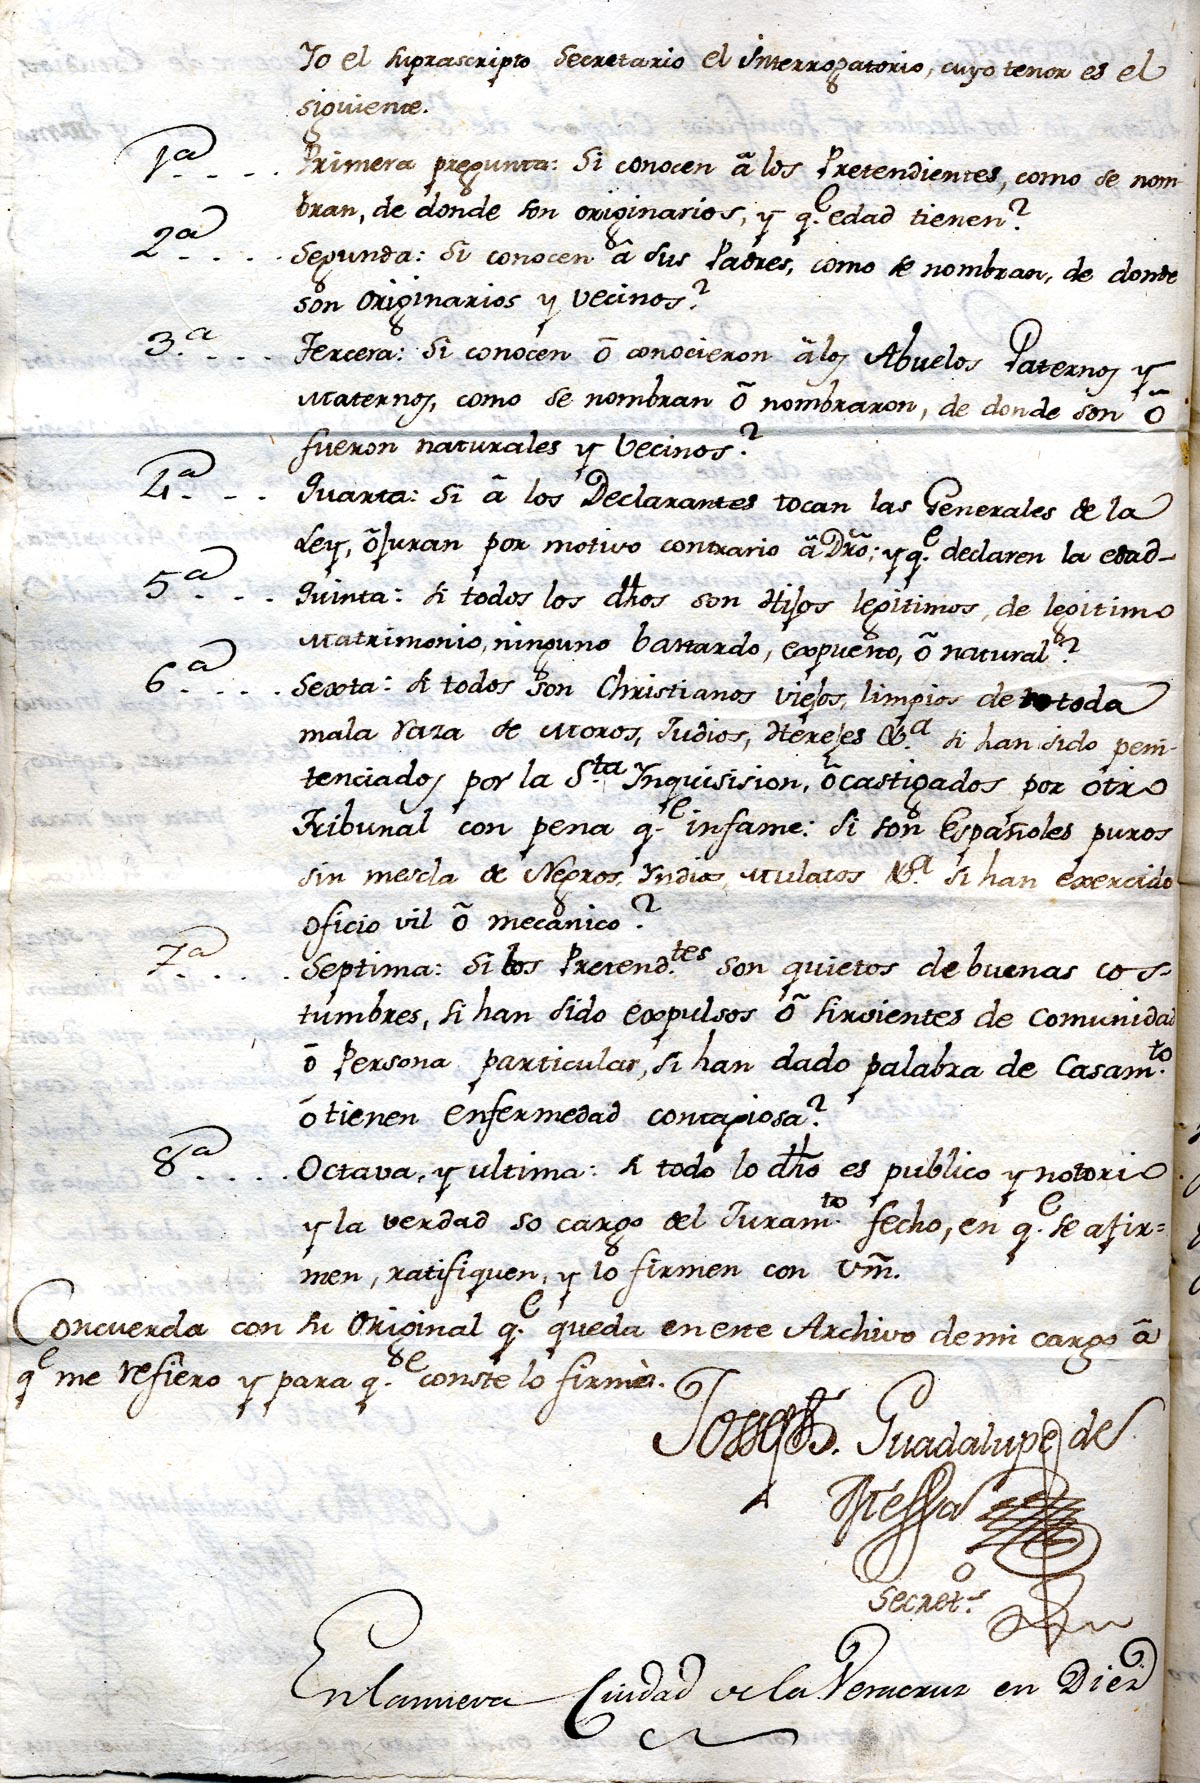 Yo el suprascripto Secretario el interrogatorio, cuyo tenor es el
siguiente.
1ª.... Primera pregunta: Si conocen â los Pretendientes, como se nom
bran, de donde son originarios, y q.e edad tienen?
2ª.... Segunda: Si conocen â sus Padres, como se nombran, de donde
son originarios y vecinos?
3.ª... Tercera: Si conocen ô conocieron âlos Abuelos Paternos y
Maternos, como se nombran ô nombraron, de donde son ô
fueron naturales y vecinos?
4ª... Quarta: Si â los Declarantes tocan las Generales de la
Ley, ôJuran por motivo contrario âDro; y q.e declaren la edad-
5ª... Quinta: Si todos los dhos son Hijos legitimos, de legitimo
Matrimonio, ninguno bastardo, expuesto, ô natural?
6ª.... Sexta: Si todos son Christianos viejos, limpios de toda
mala raza de Moros, Judios, Herejes &.ª si han sido peni-
tenciados por la S.ta Ynquisision, ôcastigados por otro
Tribunal con pena q.e infame: Si son Españoles puros
sin mescla de Negros, Yndios, Mulatos &.ª si han exercido
oficio vil ô mecanico?
7ª.... Septima: Si los Pretend.tes son quietos de buenas cos-
tumbres, si han sido expulsos ô sirvientes de Comunidad
ô Persona particular, si han dado palabra de Casam.to
ôtienen enfermedad contagiosa?
8ª.... Octava, y ultima: Si todo lo dho es publico y notorio
y la verdad so cargo del Juram.to fecho, en q.e se afir=
men, ratifiquen, y lo firmen con Vm.
Concuerda con su Original q.e queda en este Archivo de mi cargo â
q.e me refiero y para q.e conste lo firmè.
Joseph. Guadalupe de
Messa
Secret.o
En la nueva Ciudad de la Veracruz en Diez